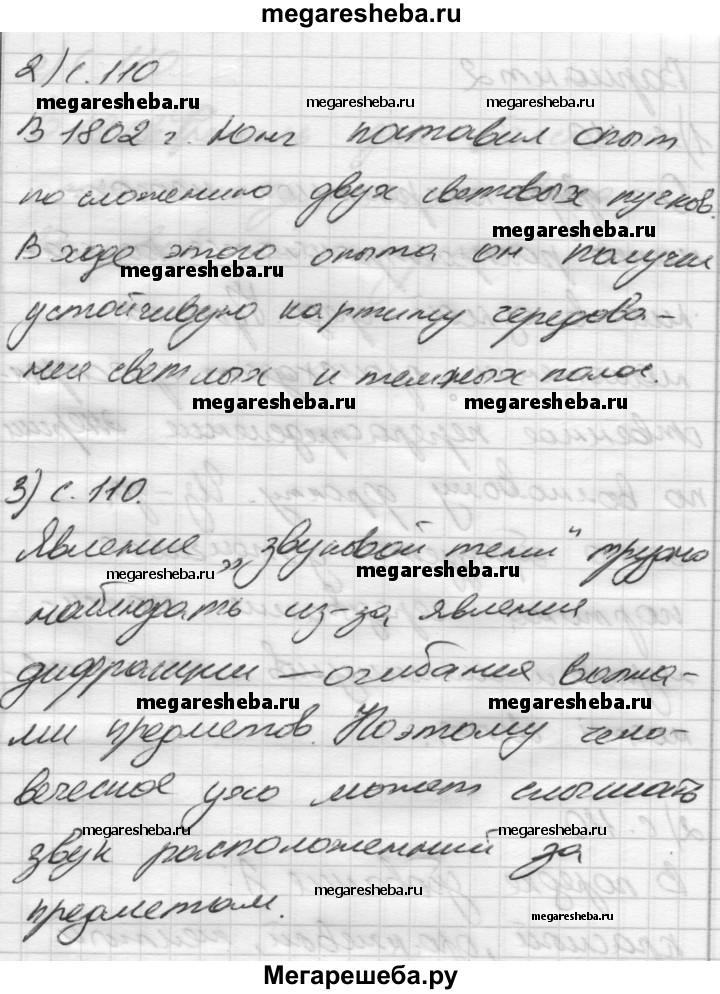 megaresheba.ru
2) с. 110
megaresheba.ru megaresheba.ru megaresheba.ru
В 1802 г. Юнг поставил опыт
по сложению двух световых пучков.
megaresheba.ru
В ходе этого опыта он получил
megaresheba.ru
устойчивую картину чередова-
ния светлых и темных полос.
megaresheba.ru megaresheba.ru
3) с. 110.
Явление „звуковой тени" трудно
megaresheba.ru megaresheba.ru
наблюдать из-за явления
дифракции – огибания волна-
megaresheba.ru megaresheba.ru
ми предметов. Поэтому чело-
веческое ухо может слышать
megaresheba.ru megaresheba.ru
звук расположенный за
megaresheba.ru
предметом.
megaresheba.ru
Мегарешеба.ру